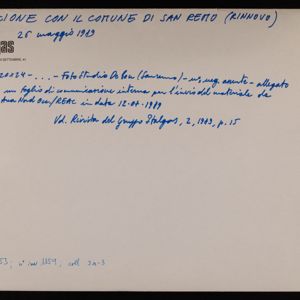 ZIONE CON IL COMUNE DI SAN REMO (RINNOVO)
25 maggio 1979
gas
20234 - ... - Foto Studio De Bon (Sanremo) - allegato
un foglio di comunicazione interna per l'invio del materiale da
in data 12-07-1979
Vd. Rivista del Gruppo Italgas, 2, 1979, p. 15
53; n° inv 1159; coll 3A-3